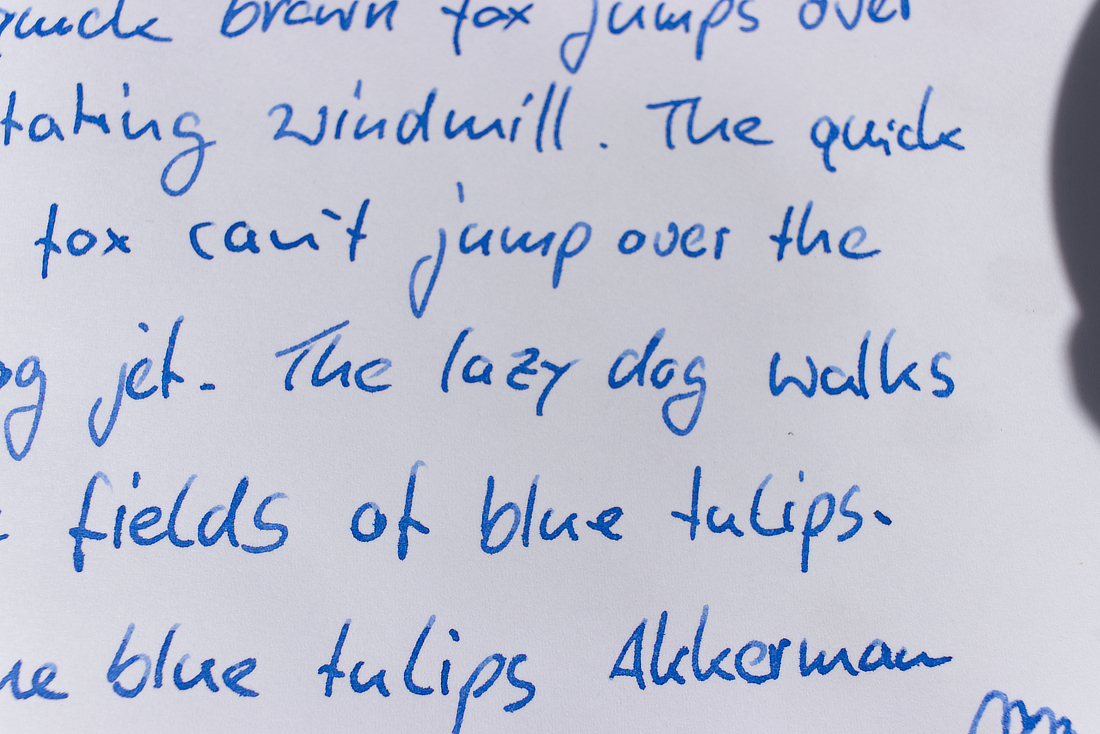 quick brown fox jumps over
tating windmill. The quick
fox can't jump over the
og jet. The lazy dog walks
fields of blue tulips.
ue blue tulips Akkerman